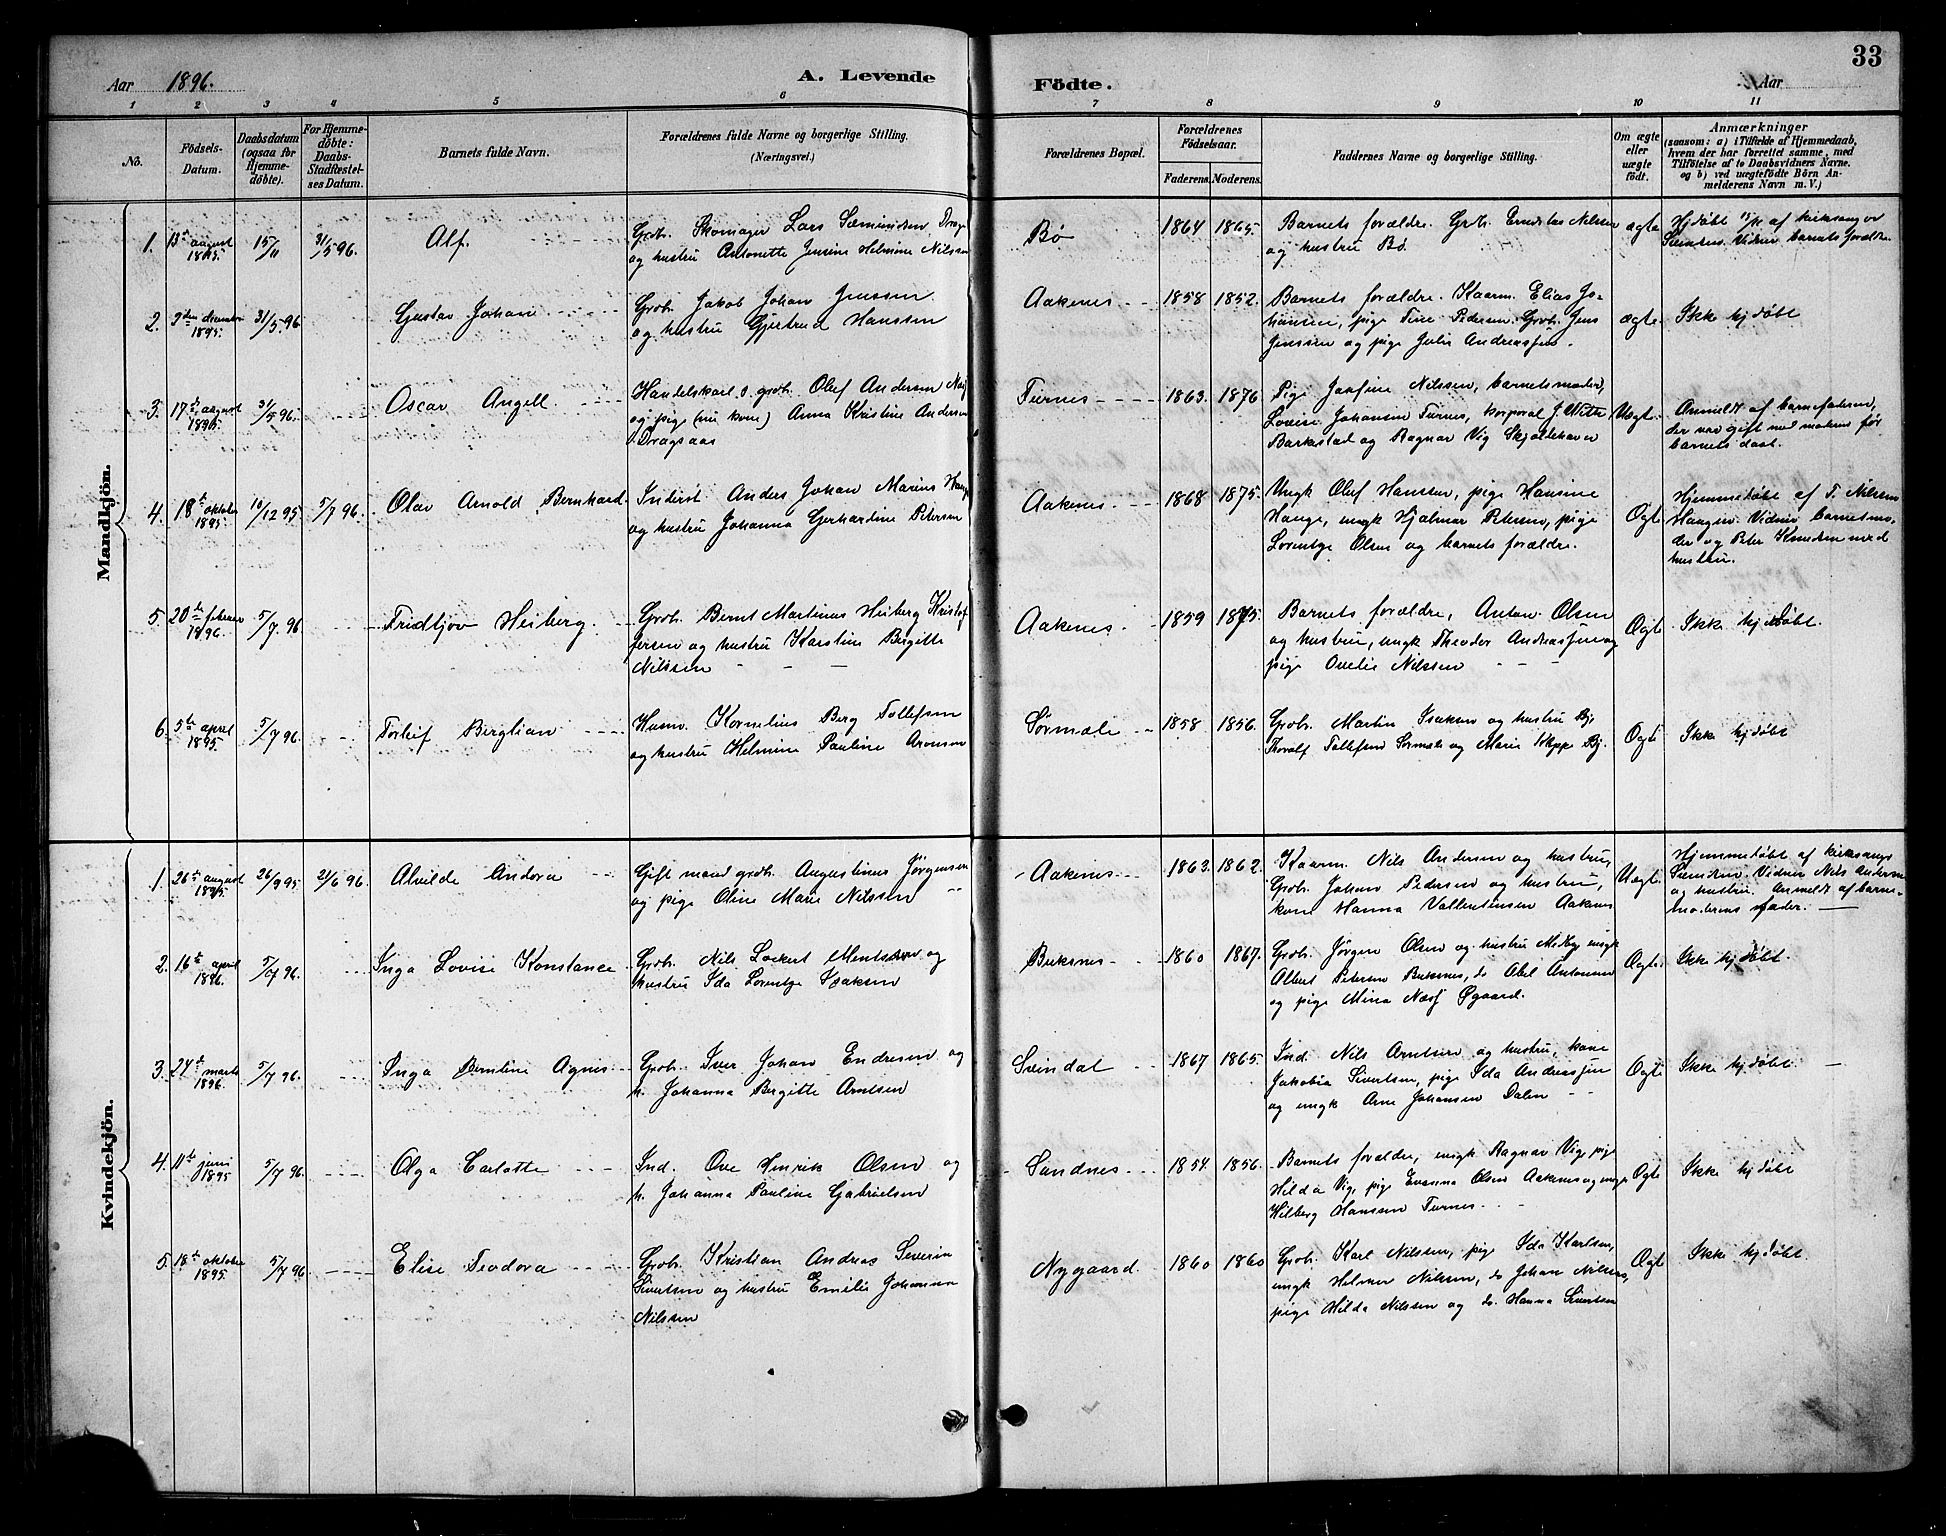 33
Aar 1896. A. Levende
Födte. Aar
1 2 3 4 5 6 7 8 9 10 11
No.
Födsels-
Datum.
Daabsdatum
(ogsaa for
Hjemme-
döbte).
For Hjemme-
döbte:
Daabs-
Stadfæstel-
ses Datum.
Barnets fulde Navn.
Forældrenes fulde Navne og borgerlige Stilling.
(Næringsvei.)
Forældrenes Bopæl.
Forældrenes
Födselsaar.
Faderens. Moderens.
Faddernes Navne og borgerlige Stilling.
Om ægte
eller
uægte
födt.
Anmærkninger
(saasom: a) i Tilfælde af Hjemmedaab,
hvem der har forrettet samme, med
Tilföielse af to Daabsvidners Navne.
og b) ved uægtefödte Börn An-
melderens Navn m. V.)
Mandkjön.
1. 13de august 1895. 15/11 31/5 96. Alf.
Grdb. Skomager Lars Sæmundsen
og hustru Antonette Jensine Helmine Nilssen
Bø 1864 1865.
Barnets forældre. Grb. Nilssen
og hustru Bø
ægte
Hjdøbt af kirksanger
Vidner barnets forældre.
2. 3die december 1895. 31/5 96 Gustav Johan
Grb. Jakob Johan Jenssen
og hustru Gjertrud Hanssen
Aakenes 1858 1852.
Barnets forældre. Kaarm. Elias Jo-
hansen, pige Tine Pedersen. Grb. Jens
Jenssen og pige Julie Andreassen.
ægte. Ikke hjdøbt
3. 17de august 1895. 31/5 96. Oscar Angell
Handelskarl s. grdb. Oluf Andersen
og pige (nu kone) Anna Kristine Andersen
Dragsaas
Turnes 1863. 1876
Pige Josefine Nilssen, barnets moder,
Lovise Johansen Turnes, korporal J. Witte
Barkstad og Ragnar Vig Skjoldehavn
Uægt.
Anmeldt af barnefaderen,
der var gift med moderen før
barnets daab.
4. 18de oktober 1895. 10/12 95 5/7 96. Olav Arnold Bernhard.
Inderst. Anders Johan Marius
og hustru Johanna Gerhardine Petersen
Aakenes 1868 1875.
Ungk. Oluf Hanssen, pige Hansine
Hauge, ungk Hjalmar Petersen, pige
Lorentze Olsen og barnets forældre.
Ægte
Hjemmedøbt af T. Nilssen
Haugen. Vidner barnets mo-
der og Peter Knudsen med
hustru.
5. 20de februar 1896. 5/7 96 Fridtjov Heiberg.
Grb. Bernt Martinus Heiberg Kristof
fersen og hustru Karstine Bergitte
Nilssen
Aakenes 1859 1875.
Barnets forældre, Anton Olsen
og hustru, ungk Theodor Andreassen og
pige Ovelie Nilssen
Ægte Ikke hjdøbt.
6. 5te april 1895. 5/7 96. Torleif Berglian
Husm. Kornelius Berg Tollefsen
og hustru Helmine Pauline Aronsen
Sørmæle 1858 1856.
Grb. Martin Isaksen og hustru
Thorolf Tollefsen Sørmæle og Marie Klepp
Ægte Ikke hjdøbt
Kvindekjön.
1. 26de august 1895. 26/9 95 21/6 96. Alvilde Andora
Gift mand grb. Augustinus Jørgensen
og pige Oline Marie Nilssen
Aakenes 1863. 1862.
Kaarm. Nils Andersen og hustru,
Grb. Johan Pedersen og hustru,
kone Hanna Vallentinsen Aakenes
Uægt.
Hjemmedøbt af kirksang.
Vidner Nils Andersen
og hustru. Anmeldt af barne-
moderens fader.
2. 16de april 1896. 5/7 96. Inga Lovise Konstance
Grb. Nils Lockert Mentssen og
hustru Ida Lorentze Isaksen
Buksnes 1860 1867.
Grb. Jørgen Olsen og hustru Medby, ungk
Albert Petersen Buksnes, do Abel Antonsen
og pige Mina Næss Øgaard.
Ægte. Ikke hjdøbt.
3. 24de marts 1896. 5/7 96. Inga Berntine Agnes
Grb. Iver Johan Endresen og
h. Johanna Bergitte Arntsen
Svindal 1867 1865.
Ind. Nils Arntsen og hustru, kone
Jakobia Sivertsen, pige Ida Andreassen
og ungk Arne Johansen Dalen
Ægte Ikke hjdøbt.
4. 11te juni 1895 5/7 96. Olga Carlotte
Ind. Ove Henrik Olsen og
h. Johanna Pauline Gabrielsen
Sandnes 1854. 1856.
Barnets forældre, ungk Ragnar Vig, pige
Hilda Vig, pige Evanna Olsen Aakenes og ungk
Hilberg Hansen Turnes.
Ægte Ikke hjdøbt
5. 18de oktober 1895. 5/7 96 Elise Teodora
Grb. Kristian Andreas Severin
Sivertsen og hustru Emilie Johanna
Nilssen
Nygaard. 1860 1860
Grb. Karl Nilssen, pige Ida Karlsen,
ungk Helmer Nilssen, do Johan Nilssen,
pige Hilda Nilssen og do. Hanna Sivertsen
Ægte Ikke hjdøbt.